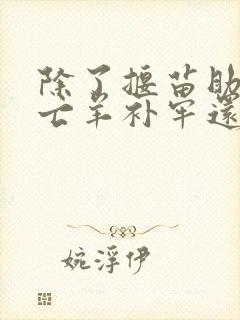 除了揠苗助
亡羊补牢还
婉浮伊